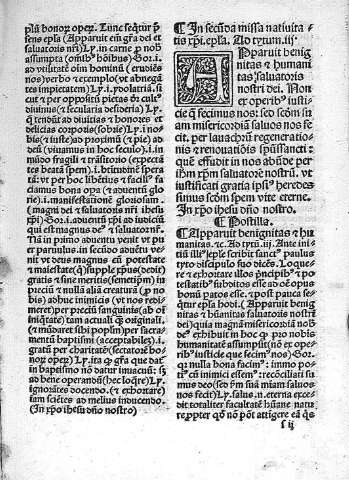 plū bonor̄ oper̄. Tunc seq̄tur p̄
sens epl̄a (Apparuit em̄ gr̄a dei et
saluatoris nr̄i) Ly. in carne p̄ nob̓
assumpta (om̄ib̓ hōib̓us) Gor. i.
ad vtilitatē oīm hominū (erudiēs
nos) verbo ⁊ exemplo (vt abnegā
tes impietatē) Ly. i. ydolatriā. si
cut ⁊ per oppositū pietas est cul
diuinus (⁊ secularia desideria) Ly.
q̄ tendūt ad diuitias ⁊ honores et
delicias corporis (sobrie) Ly. i. no
bis (⁊ iuste) ad proximū (⁊ pie) ad
deū (viuamus in hoc seculo) . i. in
mūdo fragili ⁊ trāsitorio (expectā
tes beatā spem)
ciamus bona oꝑa (⁊ aduentū glo
rie) . i. manifestationē gloriosam .
(magni dei ⁊ saluatoris nr̄i ihesu
xp̄i) Gor. i. aduentū xp̄i ad iudiciū
qui est magnus de⁹ ⁊ saluator n̄r.
Nā in primo aduentu venit vt pu
er paruulus. in secūdo aduētu ve
niet vt deus magnus cū potestate
⁊ maiestate (q̄ supple xp̄us (dedit)
gratis ⁊ sine meritis (semetip̄m) in
preciū ⁊ nulla alia creatura (ꝓ no
bis) abbuc inimicis (vt nos redi
meret) per preciū sanguinis (ab oī
iniq̄tate) tam actuali q̄ originali.
(⁊ mūdaret sibi populū) per sacra
mentū baptismi (acceptabilem) . i.
gratū per charitatē (sectatorē bo
nor̄ oper̄) Ly. ita q̄ gr̄a que dat̄
in baptismo nō datur inuacuū: s̄
ad bene operandū (hec loq̄re) Ly.
ignorātes docendo. (⁊ exhortare)
tam sciētes ad melius inducendo.
(In xp̄o ihesu dn̄o nostro)
¶ In secūda missa natiuita
tis xp̄i. epl̄a. Ad tytum. iij.
Apparuit benig
nitas ⁊ humani
tas saluatoris
nostri dei. Non
ex operib̓ iusti
cie q̄ fecimus nos: sed scd̄m su
am misericordiā saluos nos fe
cit. per lauachrū regenerationi
s ⁊ renouationis sp̄ussancti:
quē effudit in nos abūde per
ihm̄ xp̄m saluatorē nostrū. vt
iustificati gratia ip̄si⁹ heredes
simus scd̄m spem vite eterne.
In xp̄o ih̄u dn̄o nostro.
¶ Postilla.
¶ Apparuit benignitas ⁊ hu
manitas. ⁊c. Ad tytū. iij. Ante ini
tiū illi⁹ epl̄e scribit sanct⁹ paulus
tyto discipulo suo dicēs. Loque
re ⁊ exhortare illos p̄ncipib̓ ⁊ po
testatib̓ subditos esse ad oē opus
bonū patos esse. ⁊ post pauca se
q̄tur epl̄a hodi. (Apparuit benig
nitas ⁊ hūanitas saluatoris nostri
dei) quia magnā misericordiā nob̓
de⁹ exhibuit in hoc q̄ ꝓ nobis
humanitatē assumpsit (nō ex oper
ib̓ iusticie que fecim⁹ nos) Gor.
q̄ nulla bona facim⁹ : immo po
ti⁹ cū inimici essem⁹ : recōciliati su
mus deo (sed scd̄m suā miam saluos
nos fecit) Ly. salus. n. eterna exce
dit totaliter facultatē hūane natu
re: ꝓpter qd̄ nō pōt attigere eā q̄s
s ij